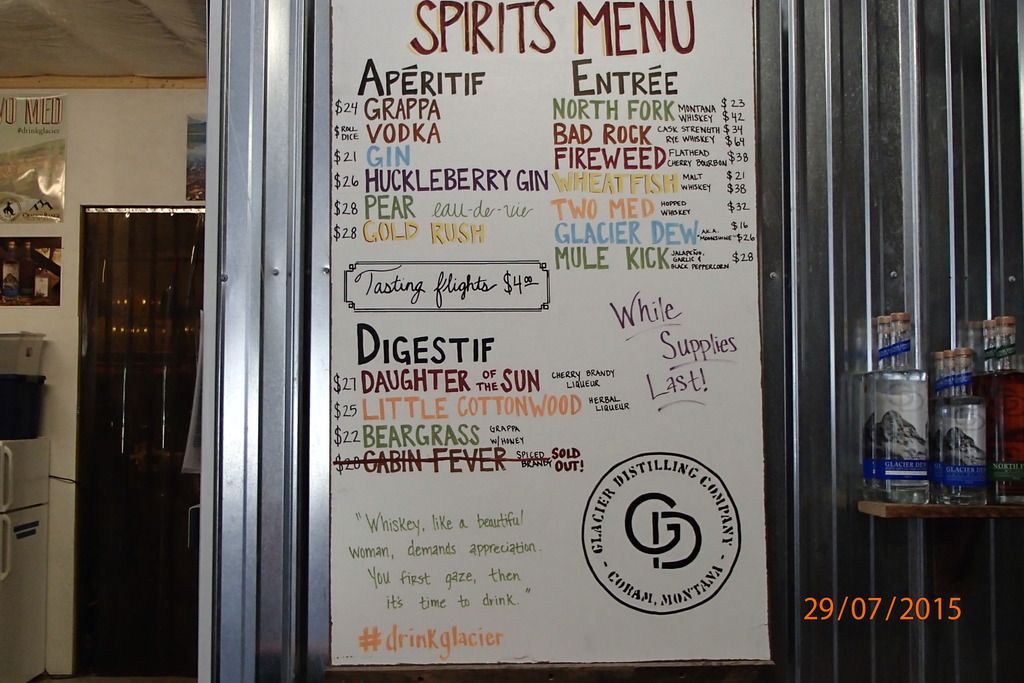 SPIRITS MENU
APÉRITIF
$24 GRAPPA
$ROLL DICE VODKA
$21 GIN
$26 HUCKLEBERRY GIN
$28 PEAR eau-de-vie
$28 GOLD RUSH
Tasting flights $4.00
ENTRÉE
NORTH FORK MONTANA WHISKEY $23 $42
BAD ROCK CASK STRENGTH RYE WHISKEY $34 $64
FIREWEED FLATHEAD CHERRY BOURBON $38
WHEATFISH MALT WHISKEY $21 $38
TWO MED HOPPED WHISKEY $32
GLACIER DEW A.K.A. "MOONSHINE" $16 $26
MULE KICK JALAPEÑO, GARLIC & BLACK PEPPERCORN $28
While
Supplies
Last!
DIGESTIF
$27 DAUGHTER OF THE SUN CHERRY BRANDY LIQUEUR
$25 LITTLE COTTONWOOD HERBAL LIQUEUR
$22 BEARGRASS GRAPPA W/HONEY
$28 CABIN FEVER SPICED BRANDY SOLD OUT!
"Whiskey, like a beautiful
woman, demands appreciation.
You first gaze, then
it's time to drink."
#drinkglacier
GLACIER DISTILLING COMPANY
GD
- CORAM, MONTANA -
MED
#drinkglacier
GLACIER DEW
GLACIER DEW
NORTH
29/07/2015